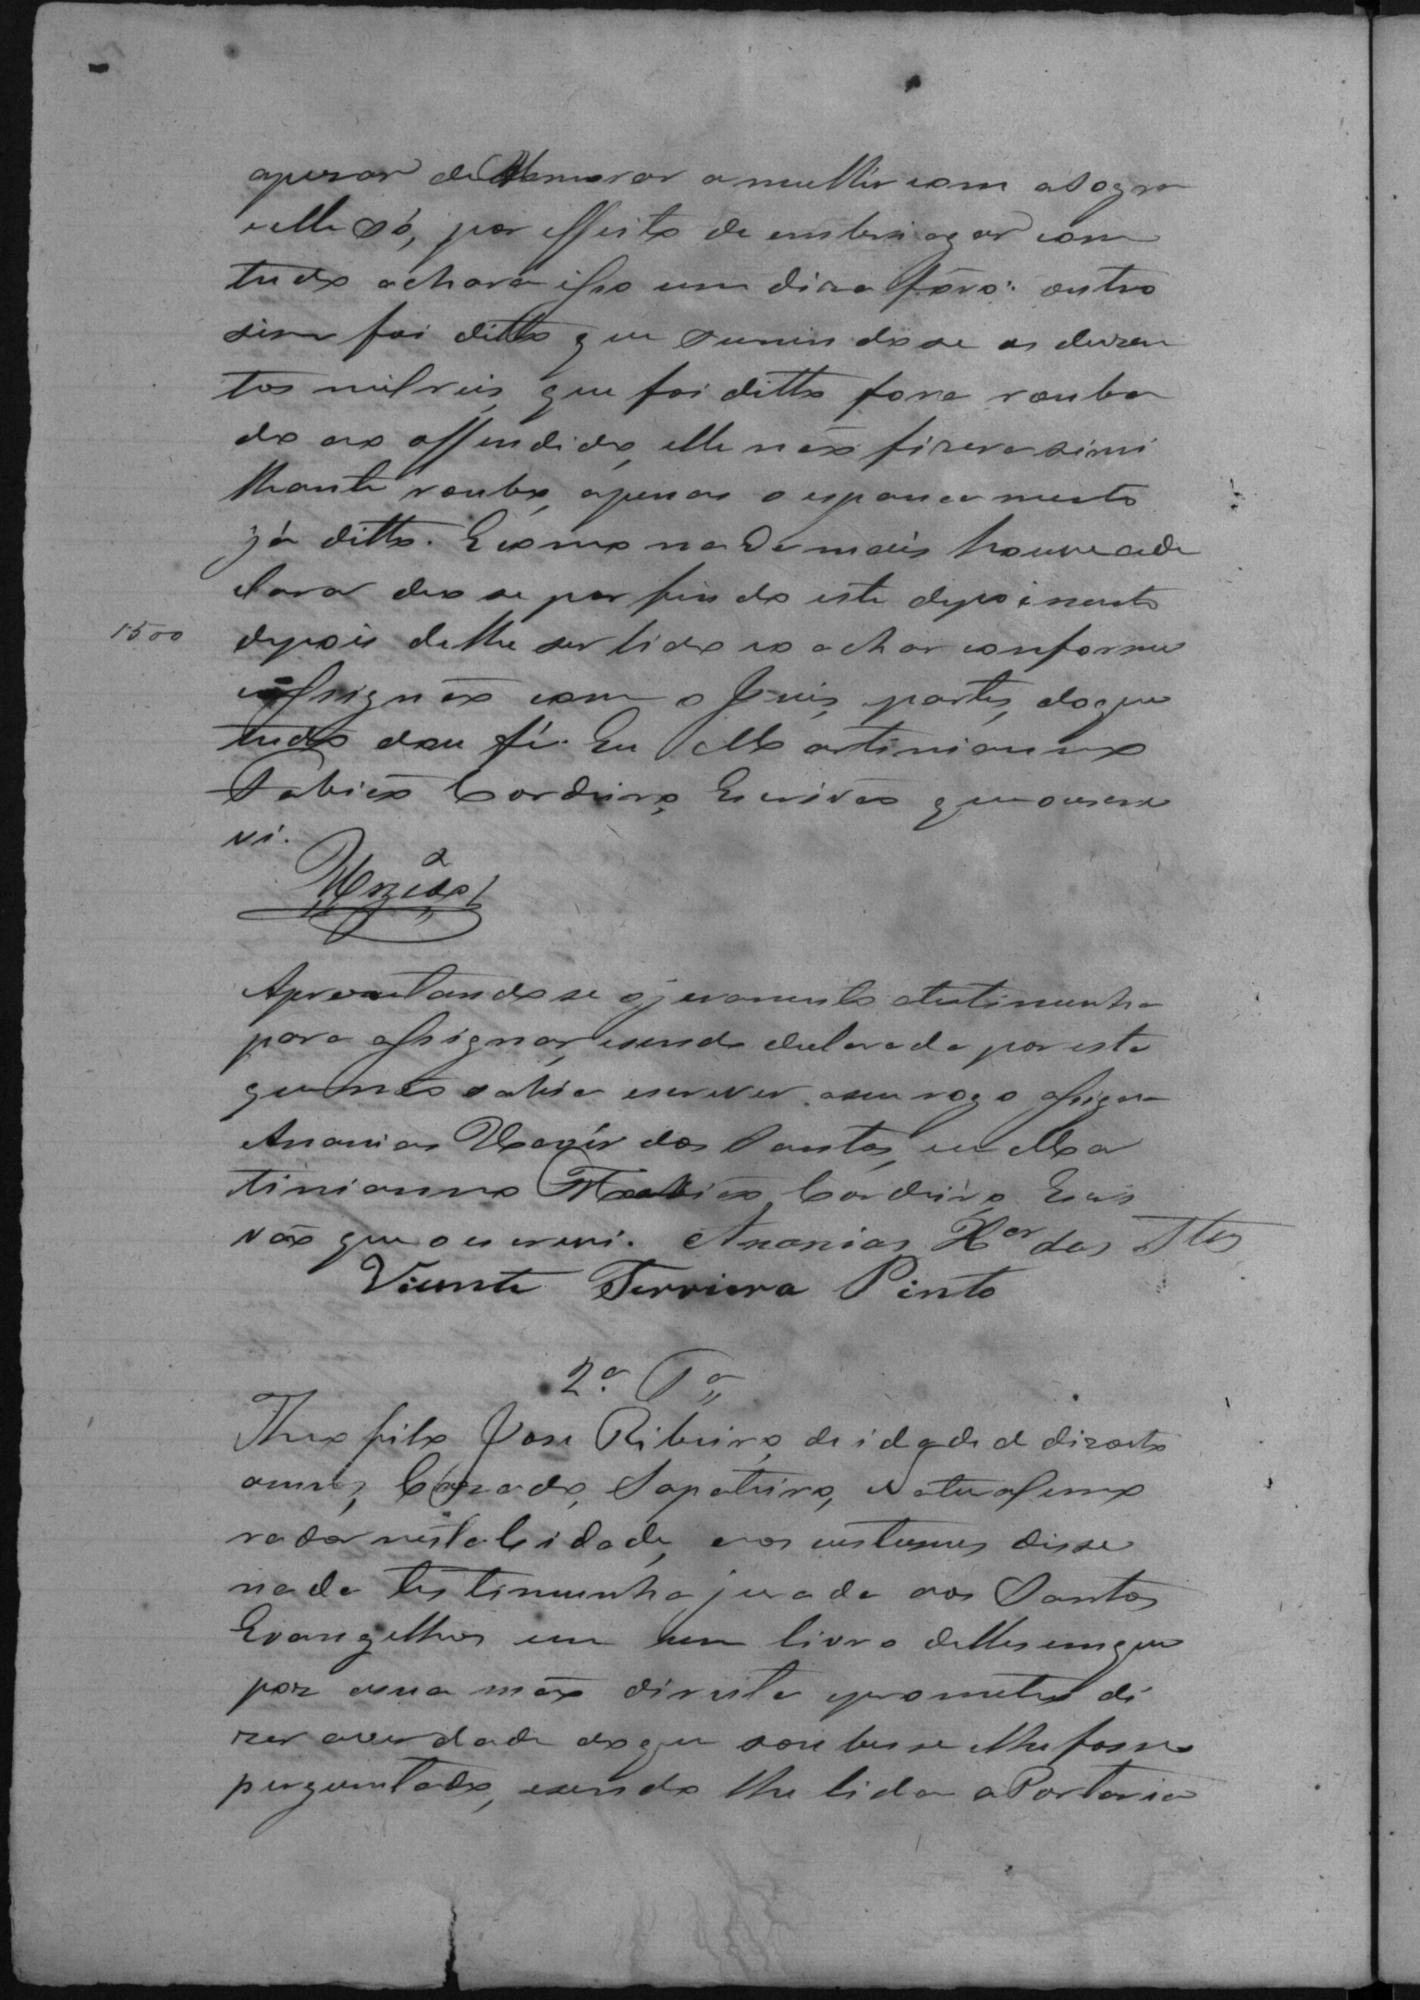 apesar de morar a mulher com a sogra
e elle só, por effeito de embriagar com
tudo achara isso um disaforo: outro
sim foi ditto que sumindo se os duzen
tos mil reis, que foi ditto fora rouba
do ao offendido, elle não fizera simi
lhante roubo, apenas o espancamento
já ditto. E como nada mais houve a de
clarar deo se por findo este depoimento
1500
depois de lhe ser lido e o achar conforme
assignão com o Juis, partes, do que
tudo dou fé. Eu Martinianno
Sabião Cordeiro, Escrivão que o escre
vi.
Apresentando se o juramento a testimunha
para assignar, e sendo declarado por esta
que não sabia escrever a seu rogo assigna
Ananias Xavier dos Santos, eu Mar
tinianno Sabião Cordeiro, Escri
vão que o escrevi. Ananias X.er dos Stos
Vicente Ferriera Pinto
2.a T.a
Theofilo Jose Ribeiro, de idade de dizoito
annos, Cazado, Sapateiro, Natural e mo
rador nesta Cidade, e aos custumes disse
nada testimunha jurada aos Santos
Evangelhos em um livro delles em que
poz a sua mão direita e prometeo di
zer a verdade do que soubesse e lhe fosse
perguntado, e sendo lhe lida a Portaria